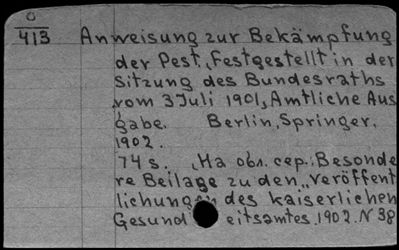 O
413 Anweisung zur Bekämpfung
der Pest, Festgestellt in der
Sitzung des Bundesraths
vom 3 Juli 1901, Amtliche Aus
gabe. Berlin, Springer.
1902.
74 s. „На обл. сер.: Besonde
re Beilage zu den „Veröffent
lichungen des kaiserlichen
Gesund eitsamtes. 1902. N 38